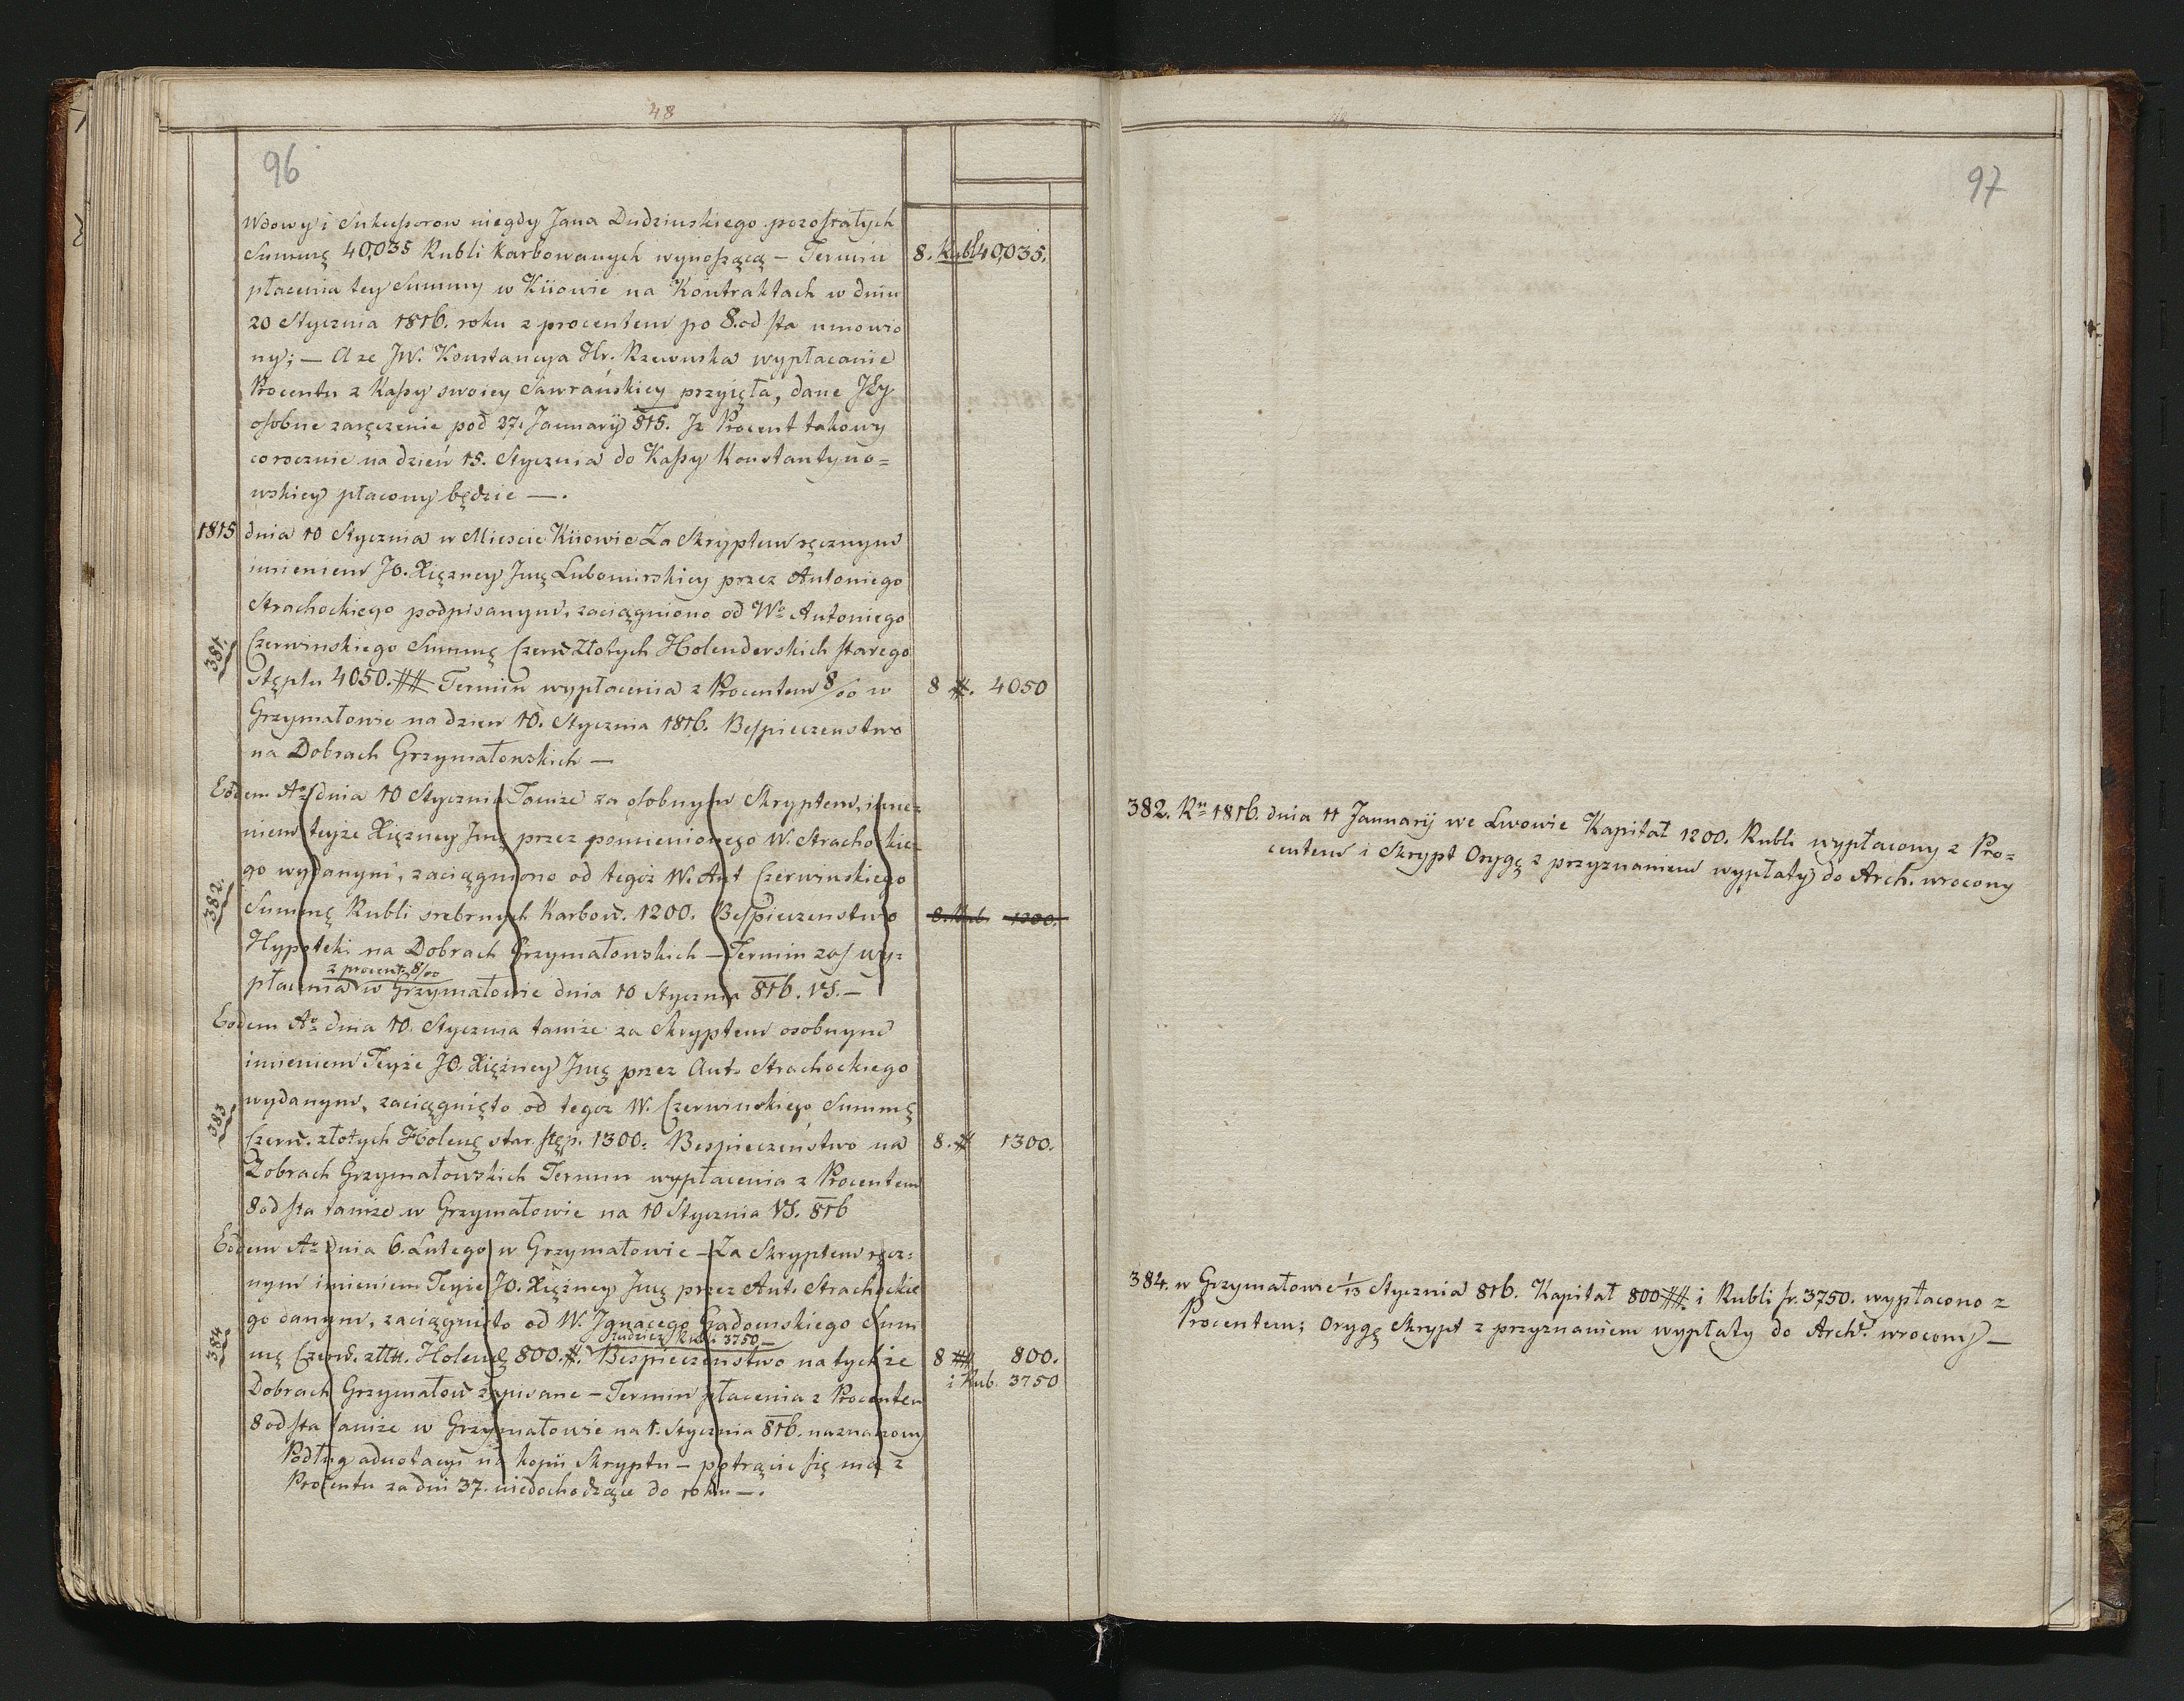 48
96
Wdowy i Sukceßorow niegdy Jana Dudzinskiego pozostałych
Summę 40,035 Rubli karbowanych wynoßącą — Termin
8. Rubl 40,035.
płacenia tey Summy w Kiiowie na Kontraktach w dniu
20 Stycznia 1816. roku z procentem po 8. od sta umowio
ny; — A ze JW. Konstancya Hr. Rzewuska wypłacanie
Procentu z Kaßy swoiey Sawrańskiey przyięła, dane JEy
osobne zaręczenie pod 27. January 815. Jz Procent takowy
corocznie na dzień 15. Stycznia do Kaßy Konstantyno=
wskiey płacony będzie —.
1815 dnia 10 Stycznia w Miescie Kiiowie Za Skryptem ręcznym
imieniem JO. Xięzney Jmę Lubomirskiey przez Antoniego
Strachockiego podpisanym, zaciągniono od Wo Antoniego
381. Czerwinskiego Summę Czerw Złotych Holenderskich starego
Stęplu 4050. ## Termin wypłacenia z Procentem 8/00 w
8 #. 4050
Grzymałowie na dzien 10. Stycznia 1816. Bespieczenstwo
na Dobrach Grzymałowskich —
Eodem Ao dnia 10 Stycznia Tamze za osobnym Skryptem, imie=
niem teyze Xięzney Jmę przez pomienionego W. Strachockie=
go wydanym, zaciągniono od tegoz W. Ant Czerwinskiego
382. Summę Rubli srebrnych Karbow. 1200. Bespieczenstwo
8. Rub. 1200.
Hypoteki na Dobrach Grzymałowskich — Termin zas wy=
z procent. 8/00
płacenia w Grzymałowie dnia 10 Stycznia 816. VS. —
Eodem Ao dnia 10. Stycznia tamze za Skryptem osobnym
imieniem Teyże JO. Xiężney Jmę przez Ant. Strachockiego
wydanym, zaciągnięto od tegoz W. Czerwinskiego Summę
383 Czerw. złotych Holenę star. stęp. 1300. Bespieczeństwo na
8. # 1300.
Dobrach Grzymałowskich Termin wypłacenia z Procentem
8 od sta tamże w Grzymałowie na 10 Stycznia VS. 816
Eodem Ao dnia 6. Lutego w Grzymałowie — Za Skryptem ręcz=
nym imieniem Teyże JO. Xiężney Jmę przez Ant. Strachockie
go danym, zaciągnięto od W. Jgnacego Gadomskiego Sum
tudziez Rubli 3750 —
384 mę Czerw. złtn. Holenę 800. #. Bespieczenstwo na tychże
8 ## 800.
Dobrach Grzymałow zapisane — Termin płacenia z Procentem
i Rub. 3750
8 od sta tamże w Grzymałowie na 1. Stycznia 816. naznaczony
Podług adnotacyi na kopii Skryptu — potrącic się ma z
Procentu za dni 37. niedochodzące do roku —.
97
382. Ru 1816. dnia 11 Januarij we Lwowie Kapitał 1200. Rubli wypłacony z Pro=
centem i Skrypt Orygę z przyznaniem wypłaty do Arch. wrocony
384. w Grzymałowie 1/13 Stycznia 816. Kapitał 800 ##. i Rubli sr. 3750. wypłacono z
Procentem; Orygę Skrypt z przyznaniem wypłaty do Archt. wrocony —